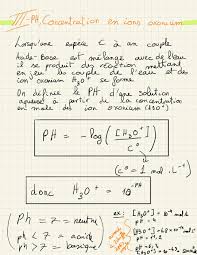 III - PH, Concentration en ions oxonium
Lorsqu'une espèce C à un couple
Acide-Base est mélangé avec de l'eau
il se produit des réaction mettant
en jeu le couple de l'eau et des
ion oxonium H3O+ se forme
On définie le PH d'une solution
aqueuse à partir de la concentration
en mole des ion oxonium [H3O+]
PH = -log ([H3O+] / C°)
(c° = 1 mol.L-1)
donc H3O+ = 10-PH
Ph = 7 = neutre
ph < 7 = acide
ph > 7 = basique
ex: [H3O+] =